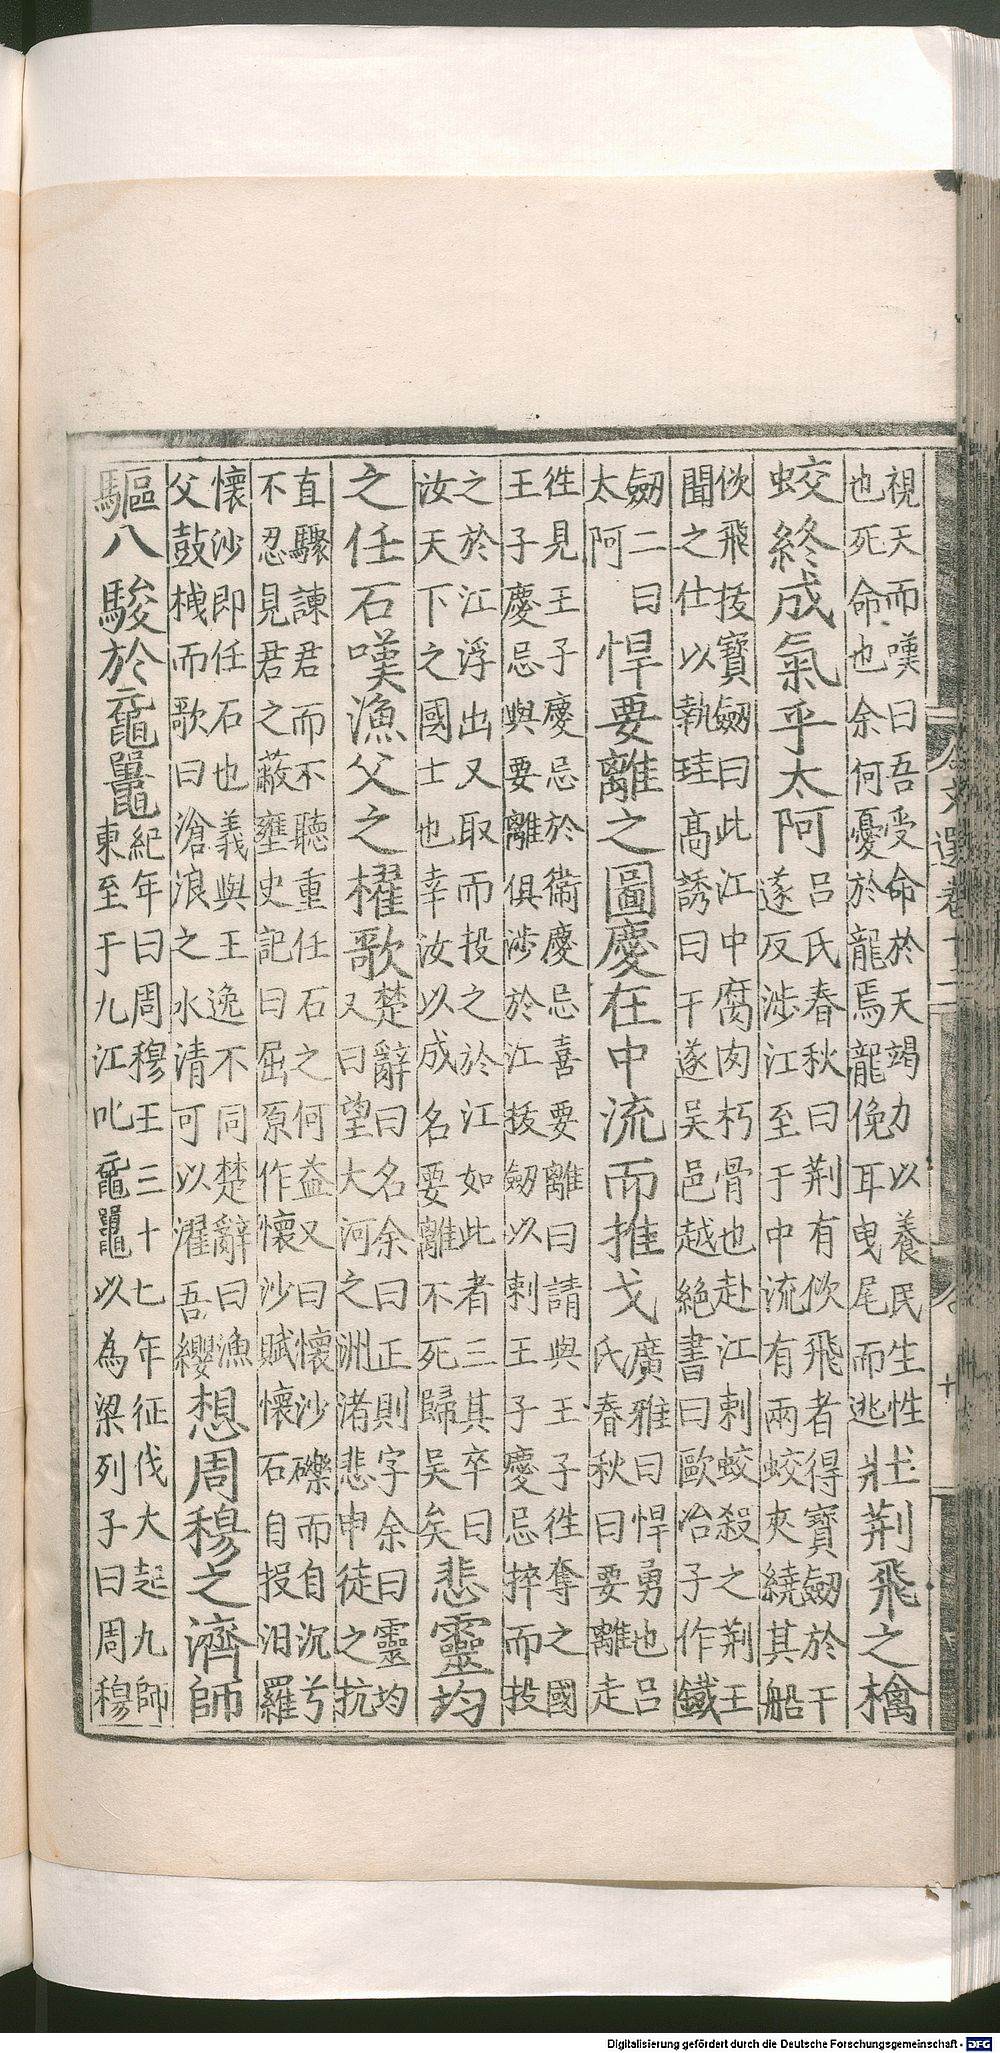 視天而嘆曰吾受命於天竭力以養民生性
也死命也余何憂於龍焉龍俛耳曳尾而逃
壯荆飛之擒
蛟終成氣乎太阿
呂氏春秋曰荆有佽飛者得寶劒於干
遂反涉江至于中流有兩蛟夾繞其船
佽飛拔寶劒曰此江中腐肉朽骨也赴江刺蛟殺之荆王
聞之仕以執珪髙誘曰干遂吴邑越絶書曰歐冶子作鐵
劒二曰
太阿
悍要離之圖慶在中流而推戈
廣雅曰悍勇也呂
氏春秋曰要離走
徃見王子慶忌於衞慶忌喜要離曰請與王子徃奪之國
王子慶忌與要離俱涉於江拔劒以刺王子慶忌捽而投
之於江浮出又取而投之於江如此者三其卒曰
汝天下之國士也幸汝以成名要離不死歸吴矣
悲靈均
之任石嘆漁父之櫂歌
楚辭曰名余曰正則字余曰靈均
又曰望大河之洲渚悲申徒之抗
直驟諫君而不聽重任石之何益又曰懷沙礫而自沉兮
不忍見君之蔽壅史記曰屈原作懷沙賦懷石自投汨羅
懷沙即任石也義與王逸不同楚辭曰漁
父鼓栧而歌曰滄浪之水清可以濯吾纓
想周穆之濟師
驅八駿於黿鼉
紀年曰周穆王三十七年征伐大起九師
東至于九江叱黿鼉以為梁列子曰周穆
文選卷十二
十
Digitalisierung gefördert durch die Deutsche Forschungsgemeinschaft - DFG